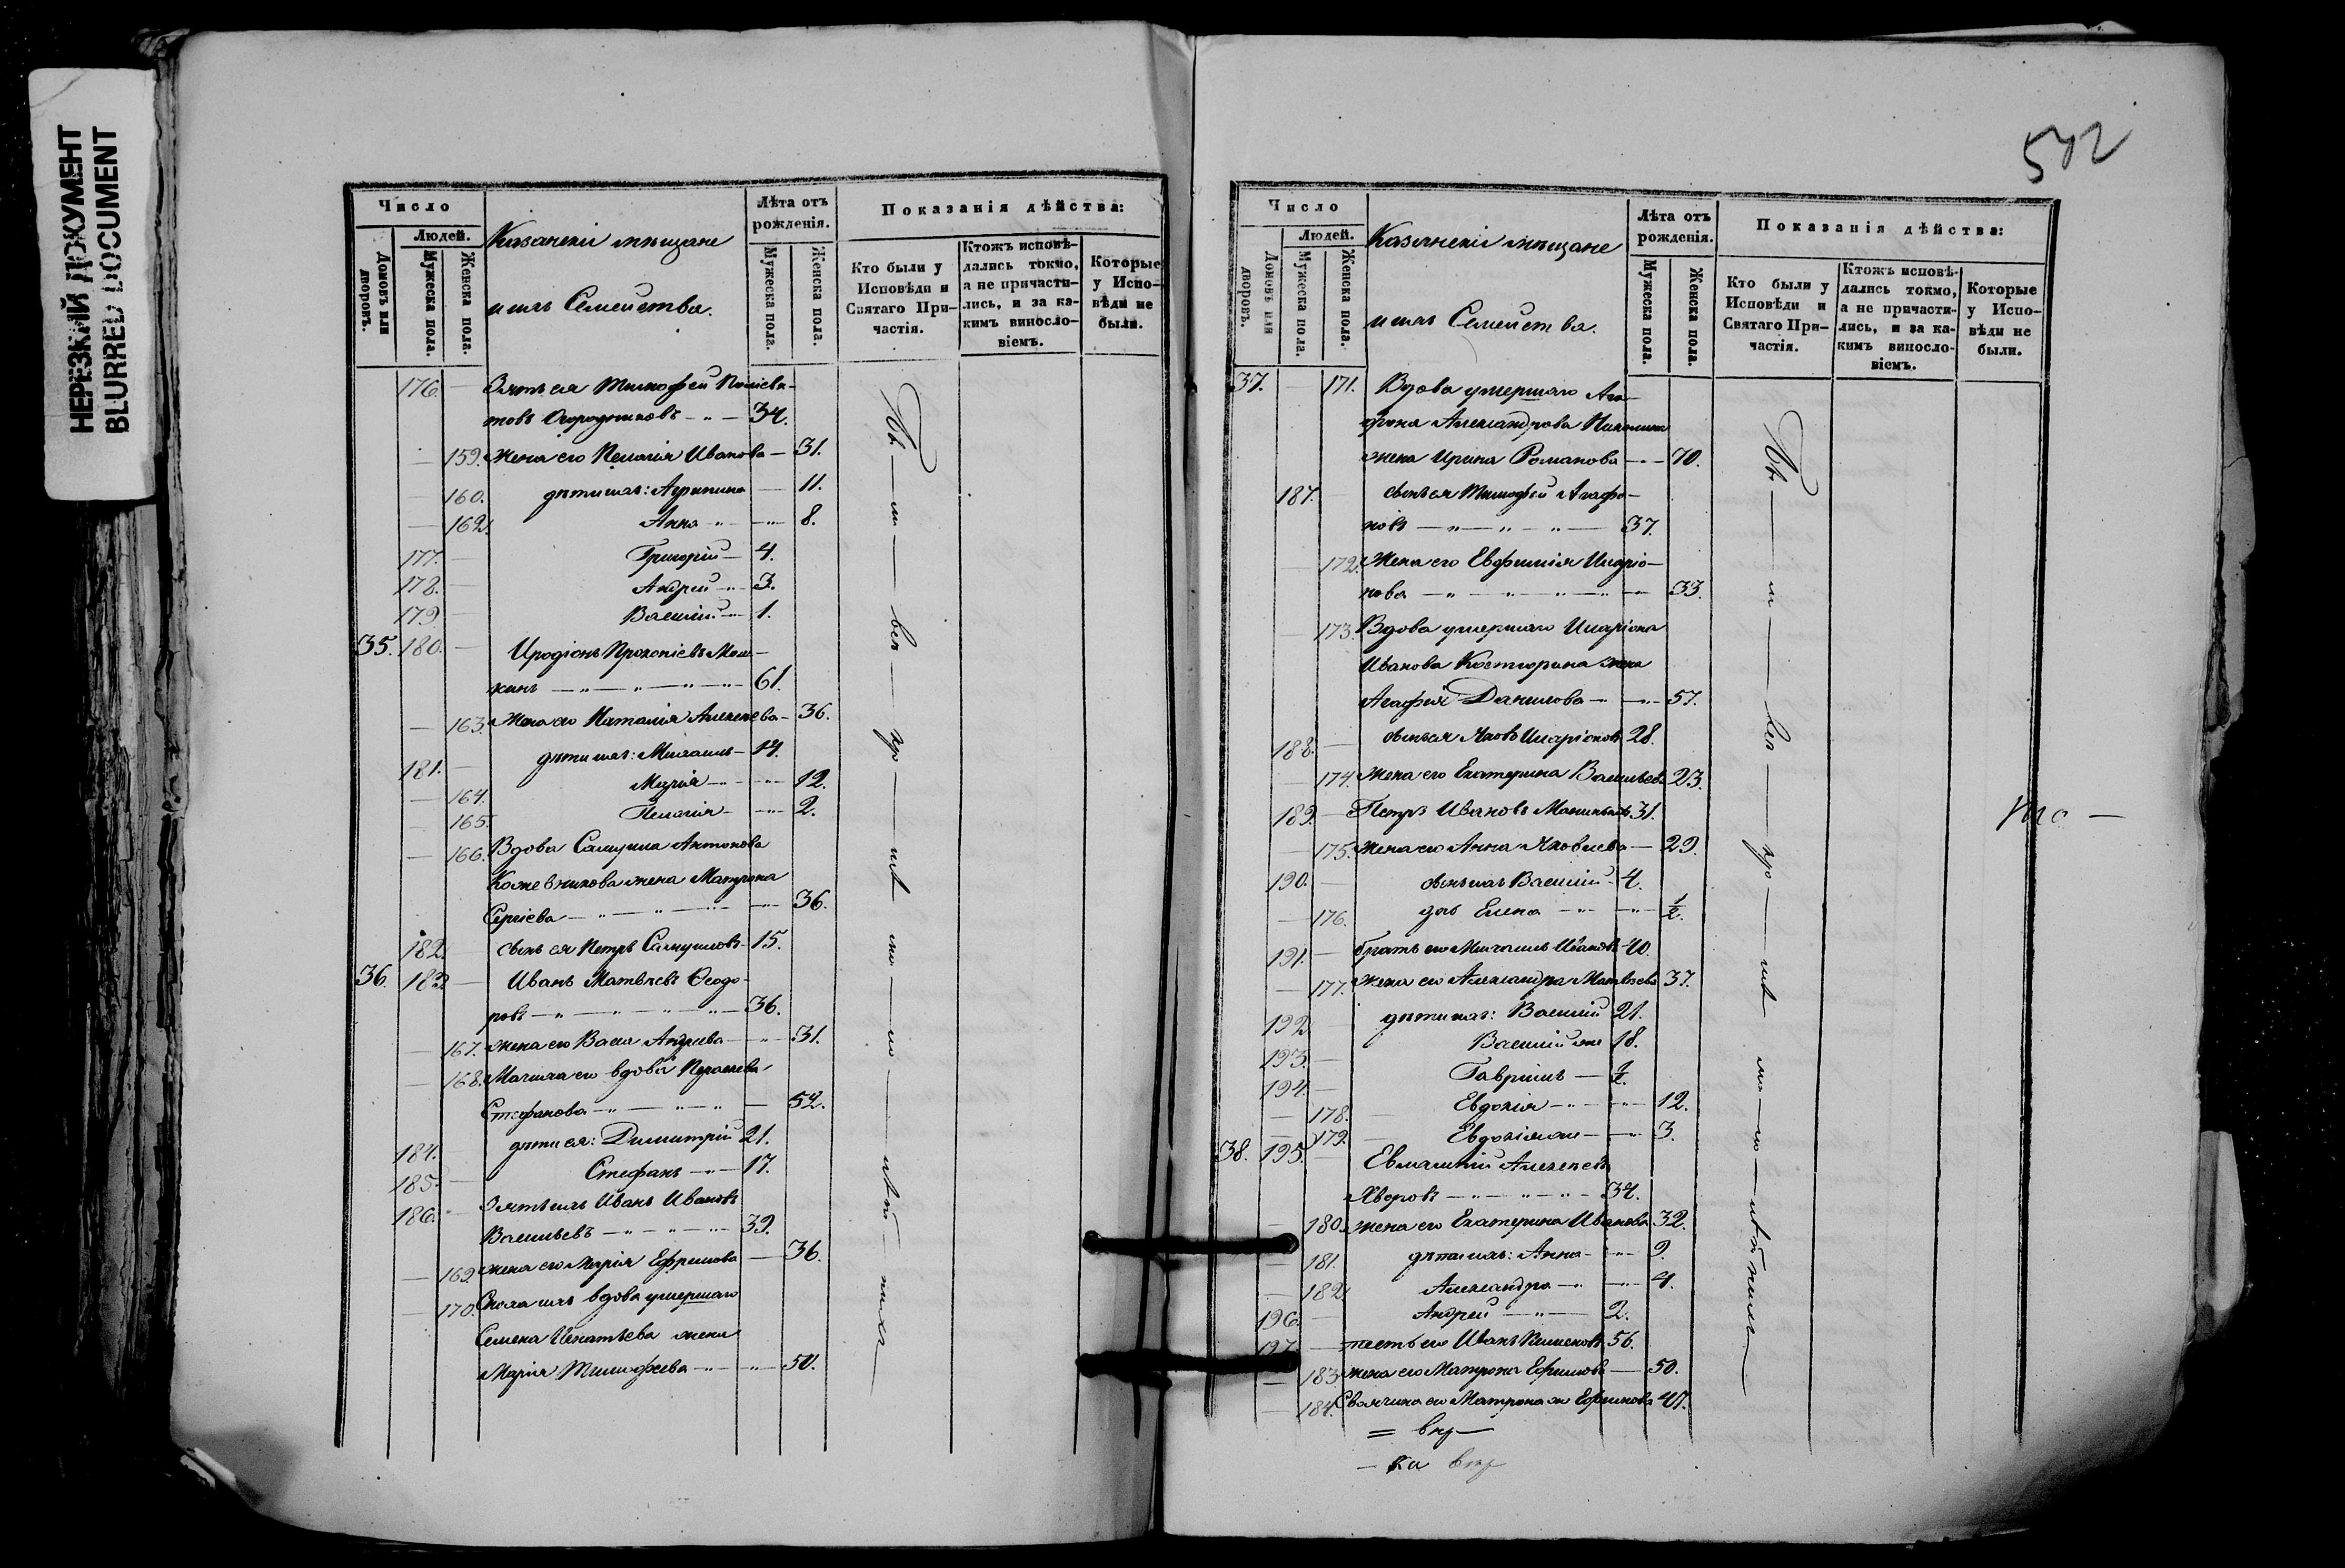 НЕРЕЗКИЙ ДОКУМЕНТ
BLURRED DOCUMENT
Число
Людей.
Домовъ или дворовъ.
Мужеска пола.
Женска пола.
Казанскіе мѣщане
и ихъ Семейства.
Лѣта отъ рожденія.
Мужеска пола.
Женска пола.
Показанія дѣйства:
Кто были у Исповѣди и Святаго Причастія.
Ктожъ исповѣдались токмо, а не причастились, и за какимъ винословіемъ.
Которые у Исповѣди не были.
176. — Зять ея Тимофей
товъ Огородниковъ — 34.
— 159. Жена его Пелагія Иванова — 31.
— 160. дѣти ихъ: Агрипина — 11.
— 162. Анна — 8.
177. — Григорій — 4.
178. — Андрей — 3.
179. — Василій — 1.
35. 180. — Иродіонъ Прокопіевъ Мош-
кинъ — 61.
— 163. Жена его Наталія Алексѣева — 36.
181. — дѣти ихъ: Михаилъ — 14.
— 164. Марія — 12.
— 165. Пелагія — 2.
— 166. Вдова Самуила Антонова
Кожевникова жена Матрона
Сергіева — 36.
182. — сынъ ея Петръ Самуиловъ — 15.
36. 183. — Иванъ Матвѣевъ Ѳеодо-
ровъ — 36.
— 167. Жена его Васса Андреева — 31.
— 168. Мачиха его вдова
Стефанова — 52.
184. — дѣти ея: Димитрій 21.
185. — Стефанъ — 17.
186. — Зять ихъ Иванъ Ивановъ
Васильевъ — 39.
— 169. Жена его Марія Ефремова — 36.
— 170. Сноха ихъ вдова умершаго
Семена Игнатьева жена
Марія Тимофеева — 50.
502
Число
Людей.
Домовъ или дворовъ.
Мужеска пола.
Женска пола.
Казанскіе мѣщане
и ихъ Семейства.
Лѣта отъ рожденія.
Мужеска пола.
Женска пола.
Показанія дѣйства:
Кто были у Исповѣди и Святаго Причастія.
Ктожъ исповѣдались токмо, а не причастились, и за какимъ винословіемъ.
Которые у Исповѣди не были.
37. — 171. Вдова умершаго Ага-
фона Александрова
жена Ирина Романова — 70.
187. — сынъ ея Тимофей Агафо-
новъ — 37.
— 172. Жена его Евфимія Иларіо-
нова — 33.
— 173. Вдова умершаго Иларіона
Иванова Костюрина жена
Агафія Данилова — 57.
188. — сынъ ея Яковъ Иларіоновъ 28.
— 174. Жена его Екатерина Васильева 23.
189. — Петръ Ивановъ 31.
— 175. Жена его Анна Яковлева — 29.
190. — сынъ ихъ Василій — 4.
— 176. дочь Елена — 1/2.
191. — братъ его Михаилъ Ивановъ 40.
— 177. Жена его Александра Матвѣева 37.
192. дѣти ихъ: Василій 21.
193. — Василій же 18.
194. — Гавріилъ — 1/2.
— 178. Евдокія — 12.
— 179. Евдокія же — 3.
38. 195. — Евлампій Алексѣевъ
Хворовъ — 34.
— 180. Жена его Екатерина Иванова 32.
— 181. дѣти ихъ: Анна — 9.
— 182. Александра — 4.
196. — Андрей — 2.
197. — тесть его Иванъ 56.
— 183. Жена его Матрона Ефимова — 50.
— 184. Своячина его Матрона же Ефимова 47.